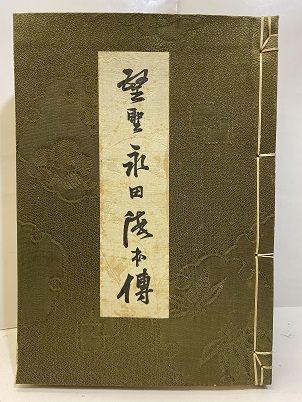 醫聖 永田徳本傳